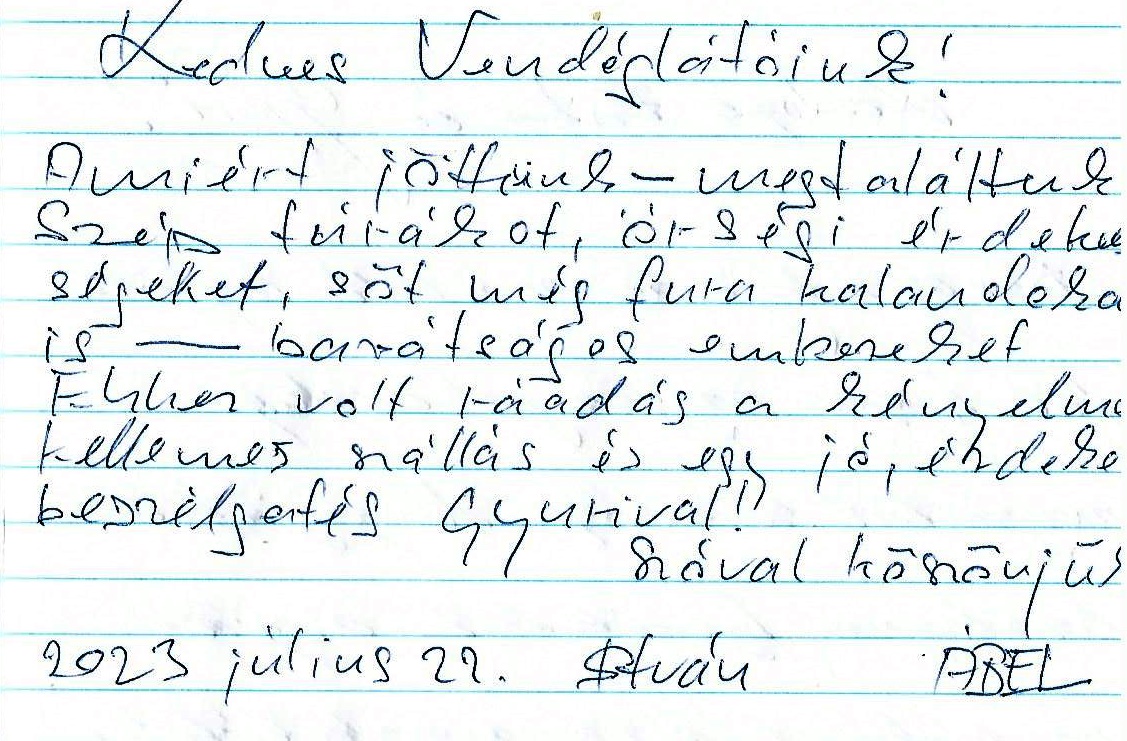 Kedves Vendéglátóink!
Amiért jöttünk – megtaláltuk
Szép túrákat, őrségi érdekes
ségeket, sőt még fura kalandoka
is — barátságos embereket
Ehhez volt ráadás a kényelme
kellemes szállás és egy jó, érdeke
beszélgetés Gyurival!!
Szóval köszönjük
2023 július 22. István ÁBEL